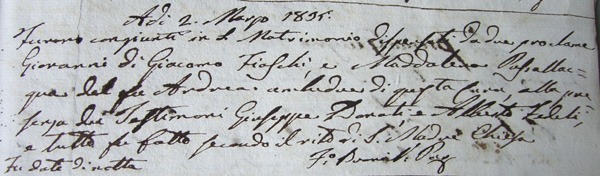 Adi 2. Marzo 1835.
Furono congiunti in S. Matrimonio dispensati da due proclame
Giovanni di Giacomo Fioschi, e Maddalena Passallac-
qua del fu Andrea ambidue di questa Cura, alla pre-
senza dei Testimoni Giuseppe Donati e Alberto Fedeli,
e tutto fu fatto secondo il rito di S. Madre Chiesa
Fu data di notta